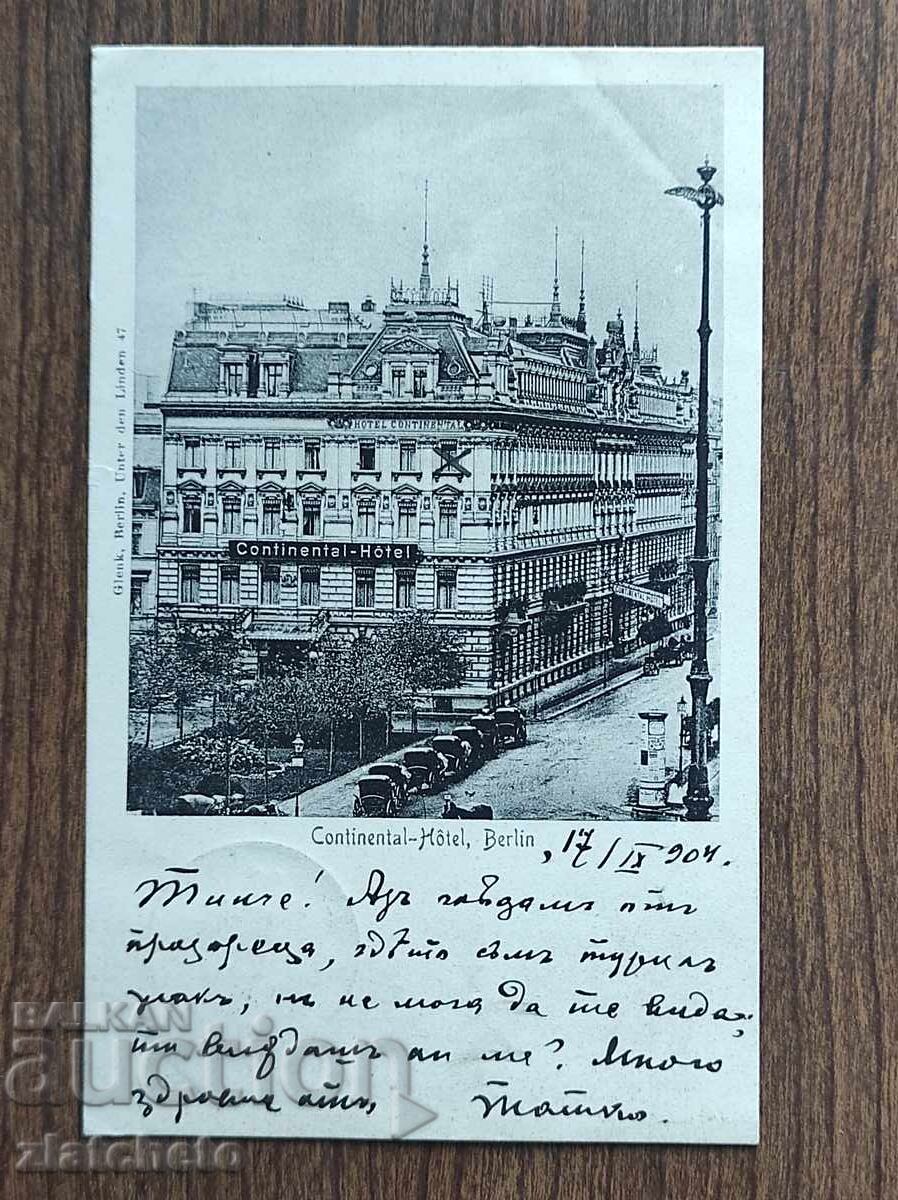 HOTEL CONTINENTAL
Continental-Hôtel
Glenk, Berlin, Unter den Linden 47
Continental-Hôtel, Berlin
, 17/IX 904.
Тинче! Азъ гльдамъ отъ
прозореца, гдѣто съмъ турилъ
знакъ, нъ не мога да те видѭ;
ти виждашъ ли ме? Много
здраве отъ, Татко.
BALKAN
auction
zlatcheto